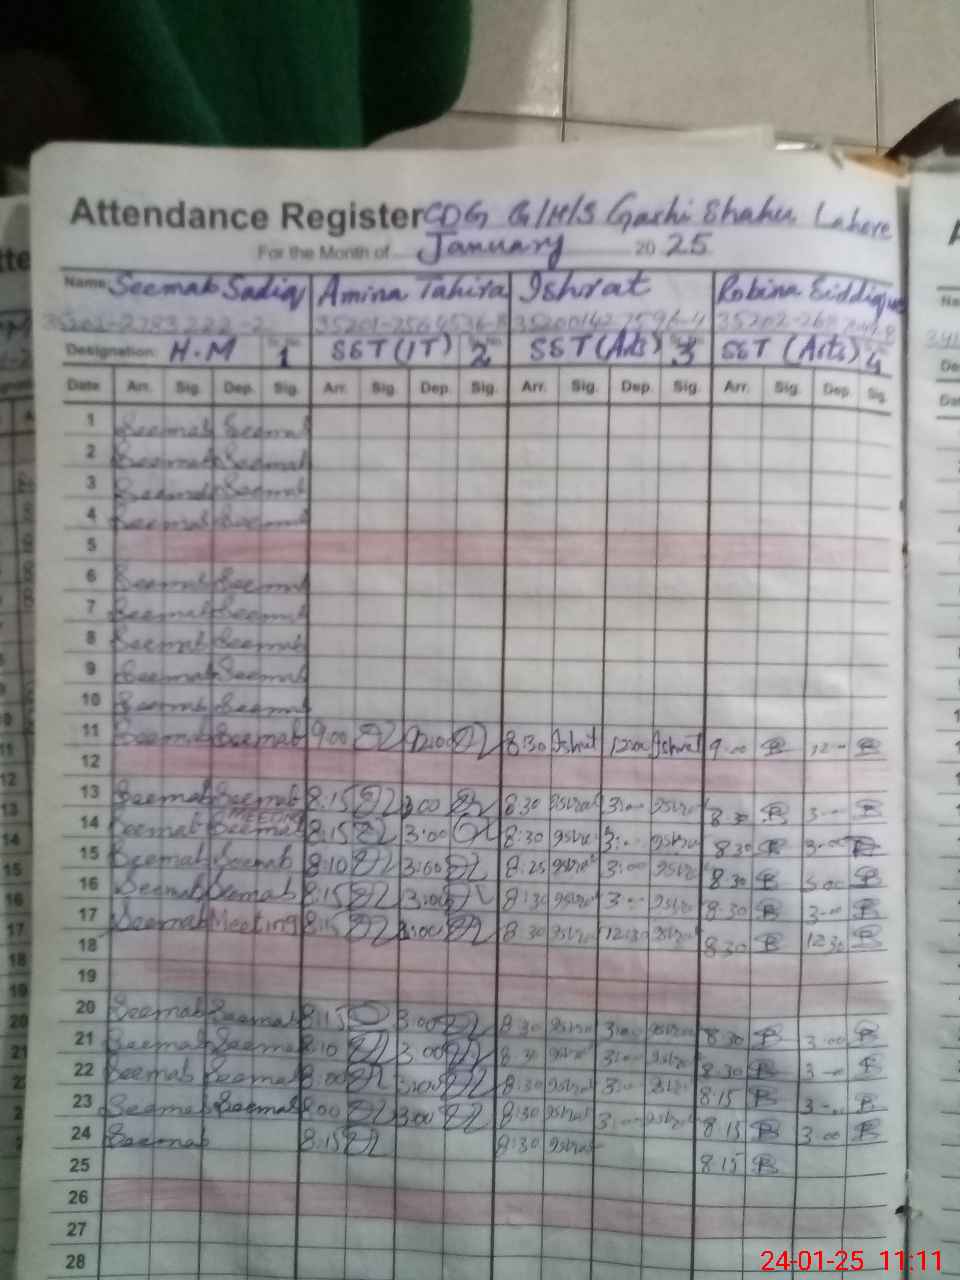 Attendance Register CDG G/H/S Garhi Shahu Lahore
For the Month of January 2025
Name: Seemab Sadiq Amina Tahira Ishrat Robina Siddique
Designation: H.M 1 SST (IT) 2 SST (Arts) 3 SST (Arts) 4
Date Arr. Sig. Dep. Sig. Arr. Sig. Dep. Sig. Arr. Sig. Dep. Sig. Arr. Sig. Dep. Sig.
1 Seemab Seemab
2 Seemab Seemab
3 Seemab Seemab
4 Seemab Seemab
5
6 Seemab Seemab
7 Seemab Seemab
8 Seemab Seemab
9 Seemab Seemab
10 Seemab Seemab
11 Seemab Seemab 9:00 12:00 8:30 Ishrat 12:00 Ishrat 9:00 12:00
12
13 Seemab Seemab 8:15 3:00 8:30 Ishrat 3:00 Ishrat 8:30 3:00
14 Seemab Seemab MEETING 8:15 3:00 8:30 Ishrat 3:00 Ishrat 8:30 3:00
15 Seemab Seemab 8:10 3:00 8:25 Ishrat 3:00 Ishrat 8:30 3:00
16 Seemab Seemab 8:15 3:00 8:30 Ishrat 3:00 Ishrat 8:30 3:00
17 Seemab Meeting 8:15 8:30 Ishrat 12:30 Ishrat 8:30 12:30
18
19
20 Seemab Seemab 8:15 3:00 8:30 Ishrat 3:00 Ishrat 8:30 3:00
21 Seemab Seemab 8:10 3:00 8:30 Ishrat 3:00 Ishrat 8:30 3:00
22 Seemab Seemab 8:00 3:00 8:30 Ishrat 3:00 Ishrat 8:15 3:00
23 Seemab Seemab 8:00 3:00 8:30 Ishrat 3:00 Ishrat 8:15 3:00
24 Seemab 8:15 8:30 Ishrat 8:15
25
26
27
28
24-01-25 11:11